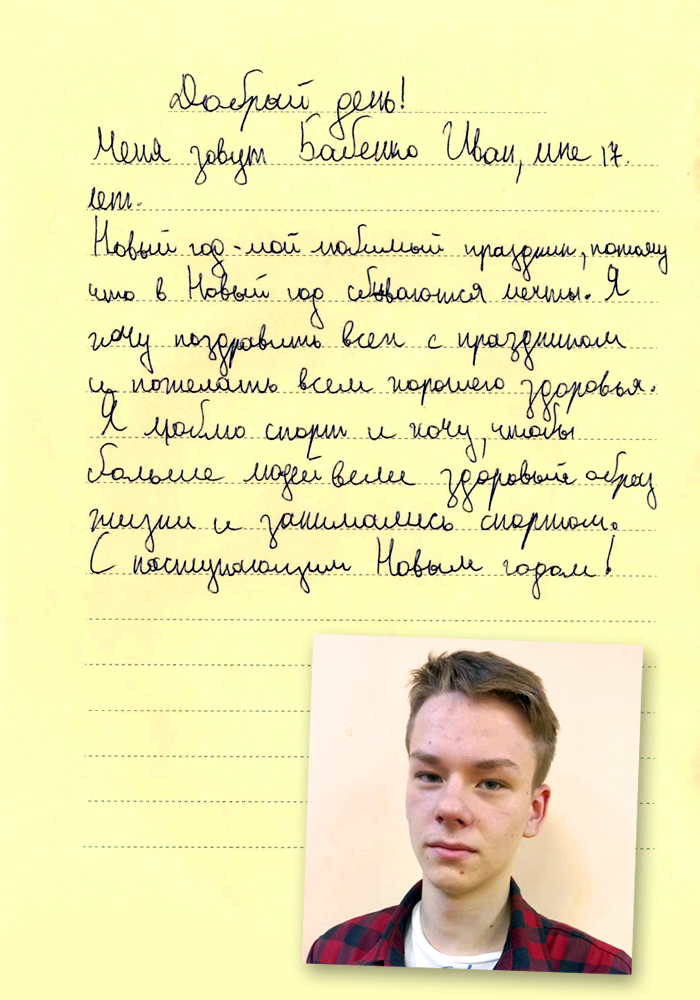 Добрый день!
Меня зовут Бабенко Иван, мне 17
лет.
Новый год - мой любимый праздник, потому
что в Новый год сбываются мечты. Я
хочу поздравить всех с праздником
и пожелать всем хорошего здоровья.
Я люблю спорт и хочу, чтобы
больше людей вели здоровый образ
жизни и занимались спортом.
С наступающим Новым годом!